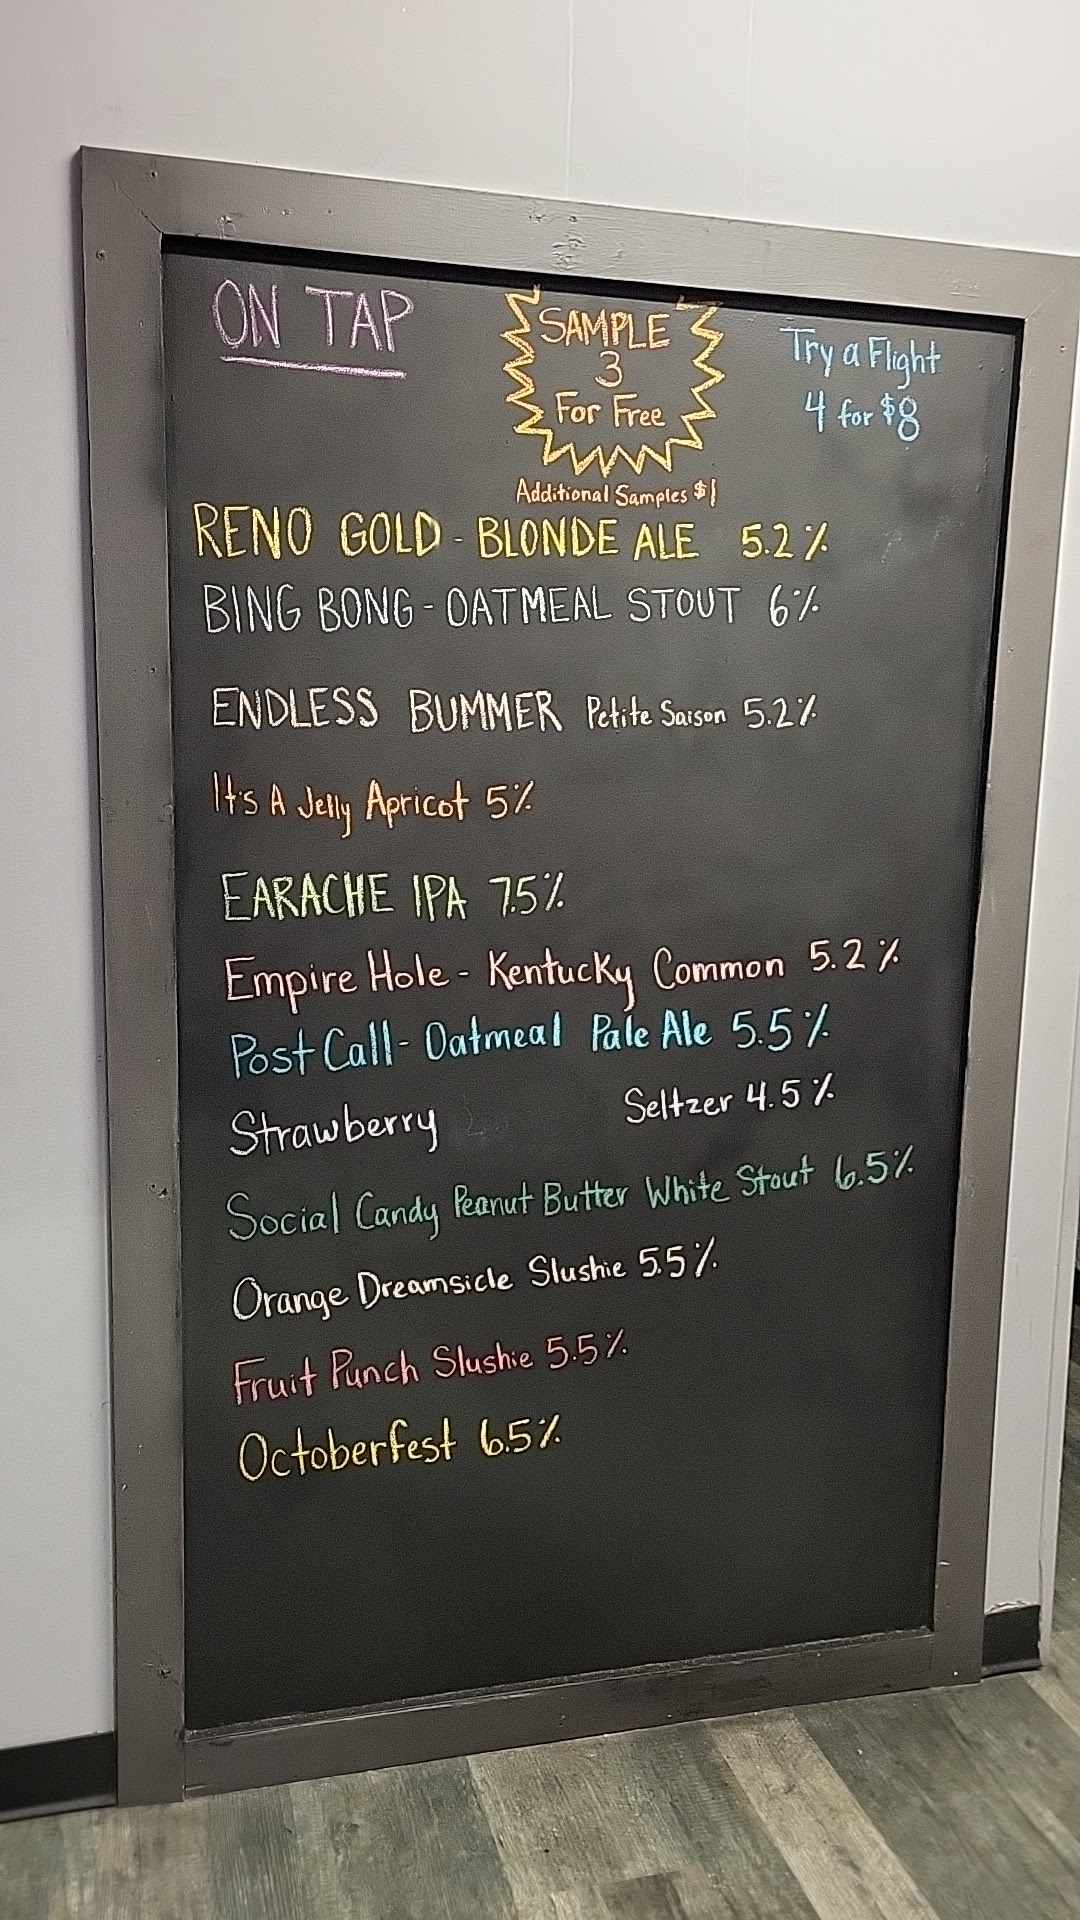 ON TAP
SAMPLE
3
For Free
Additional Samples $1
Try a Flight
4 for $8
RENO GOLD - BLONDE ALE 5.2%
BING BONG - OATMEAL STOUT 6%
ENDLESS BUMMER Petite Saison 5.2%
It's A Jelly Apricot 5%
EARACHE IPA 7.5%
Empire Hole - Kentucky Common 5.2%
Post Call - Oatmeal Pale Ale 5.5%
Strawberry Seltzer 4.5%
Social Candy Peanut Butter White Stout 6.5%
Orange Dreamsicle Slushie 5.5%
Fruit Punch Slushie 5.5%
Octoberfest 6.5%